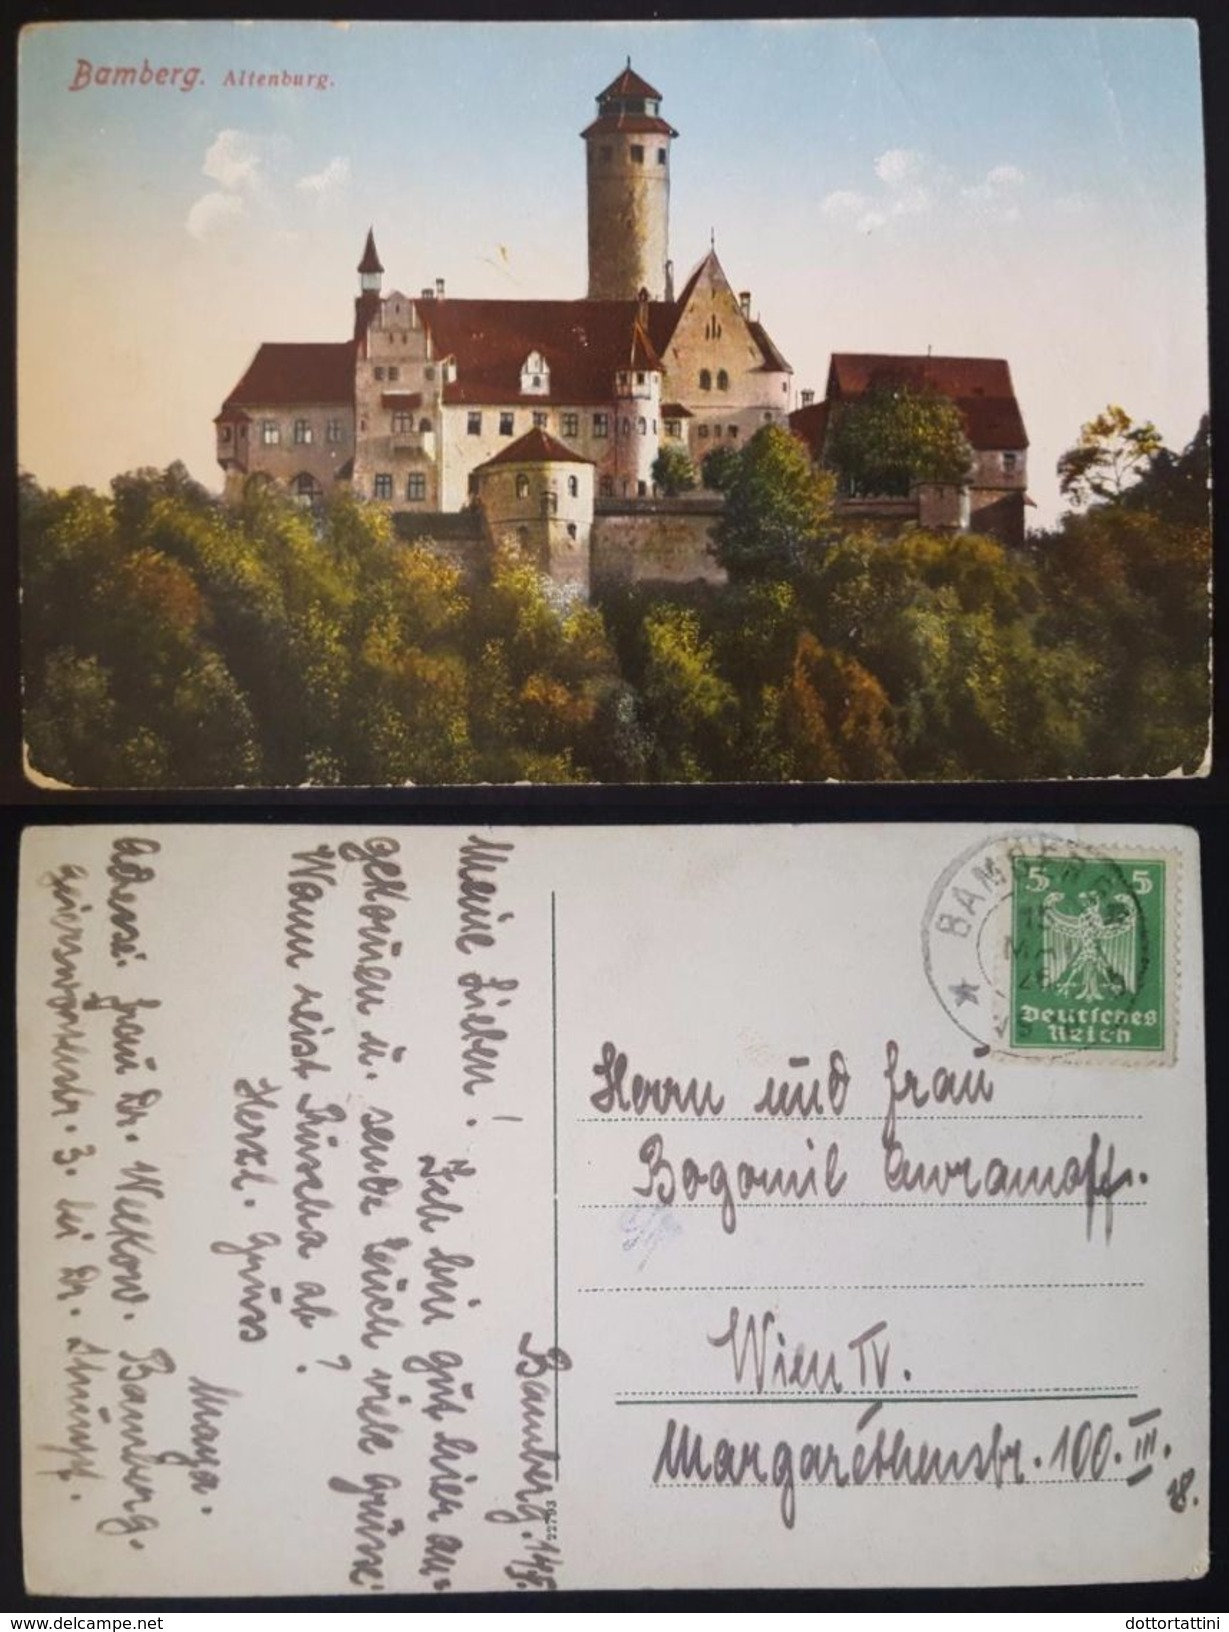 Bamberg. Altenburg.
Bamberg. 14/5.
Meine Lieben!
Ich bin gut hier an-
gekommen u. sende Euch viele Grüsse
Wann reist Rüscha ab?
Herzl. Grüss
Maya.
Adresse: Frau Dr. Wekow. Bamberg.
3. bei Dr.
22793
BAMBERG
5 5
Deutsches
Reich
Herrn und Frau
Bogomil Awramoff.
Wien IV.
Margarethenstr. 100. III.
18.
delcampe.net
dottortattini